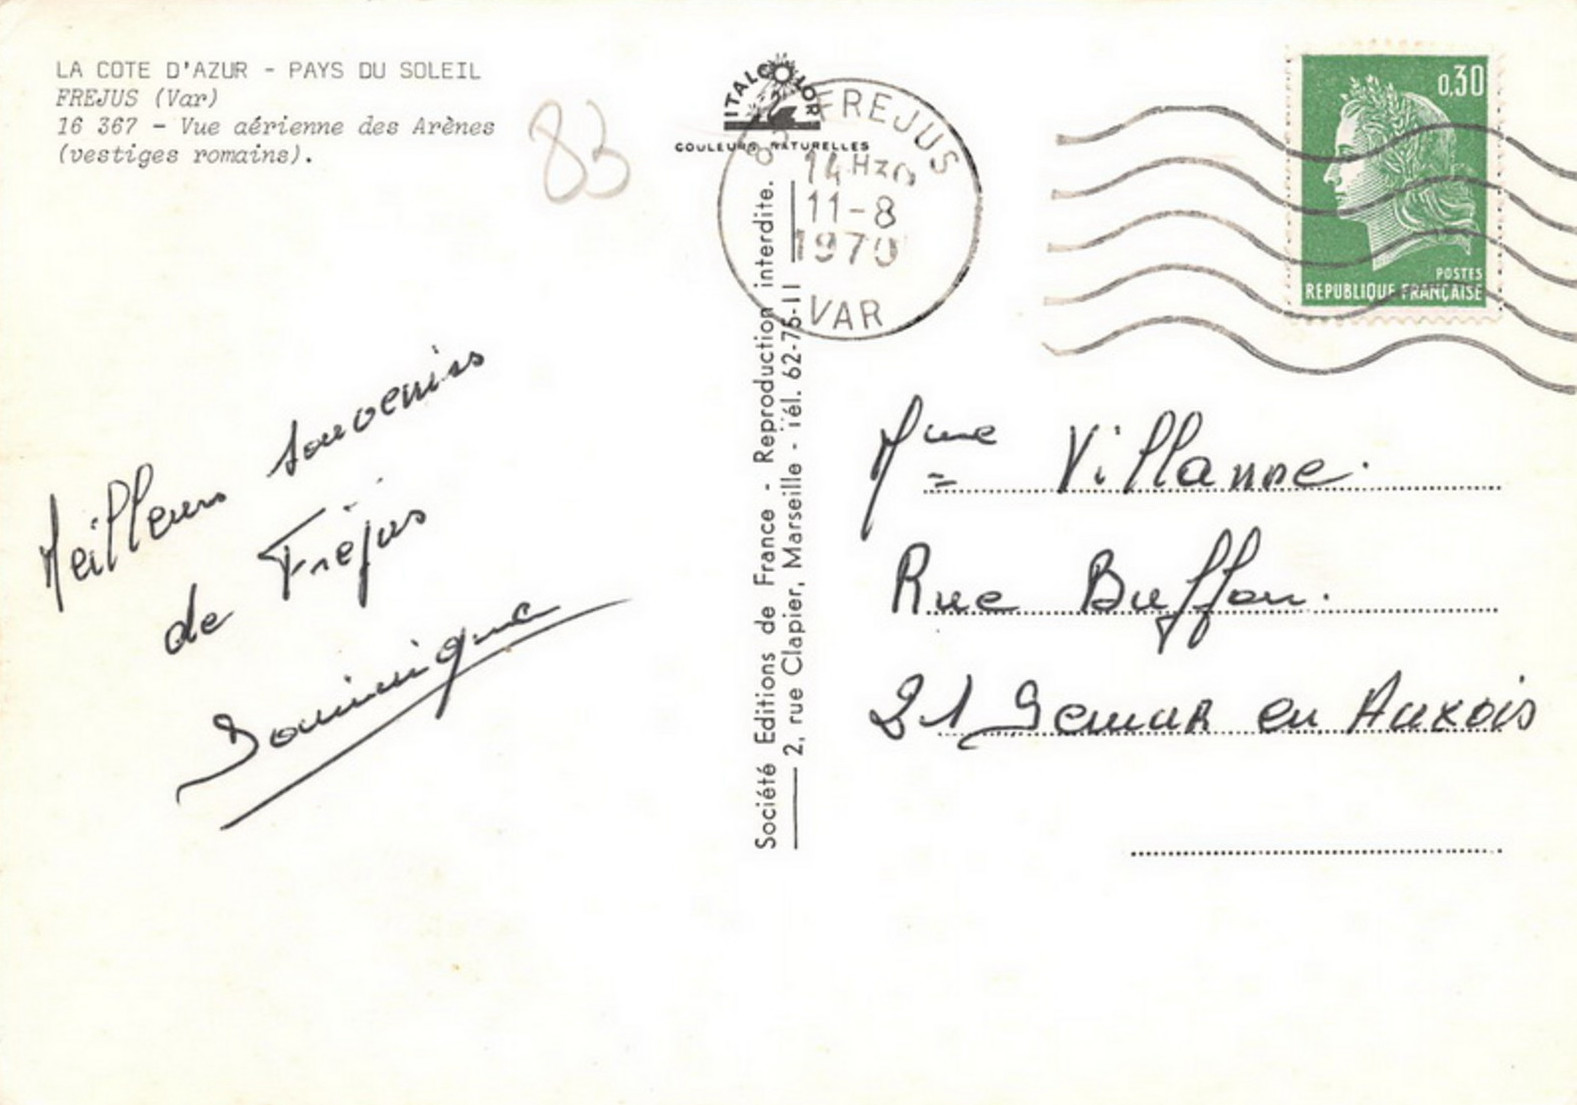 LA COTE D'AZUR - PAYS DU SOLEIL
FREJUS (Var)
16 367 - Vue aérienne des Arènes
(vestiges romains).
83
ITALCOLOR
COULEURS NATURELLES
83 FREJUS
14H30
11-8
1970
VAR
0,30
POSTES
REPUBLIQUE FRANÇAISE
Meilleurs souvenirs
de Fréjus
Dominique
Société Editions de France - Reproduction interdite.
2, rue Clapier, Marseille - Tél. 62-76-11
Mme
Rue Buffon.
21 Semur en Auxois